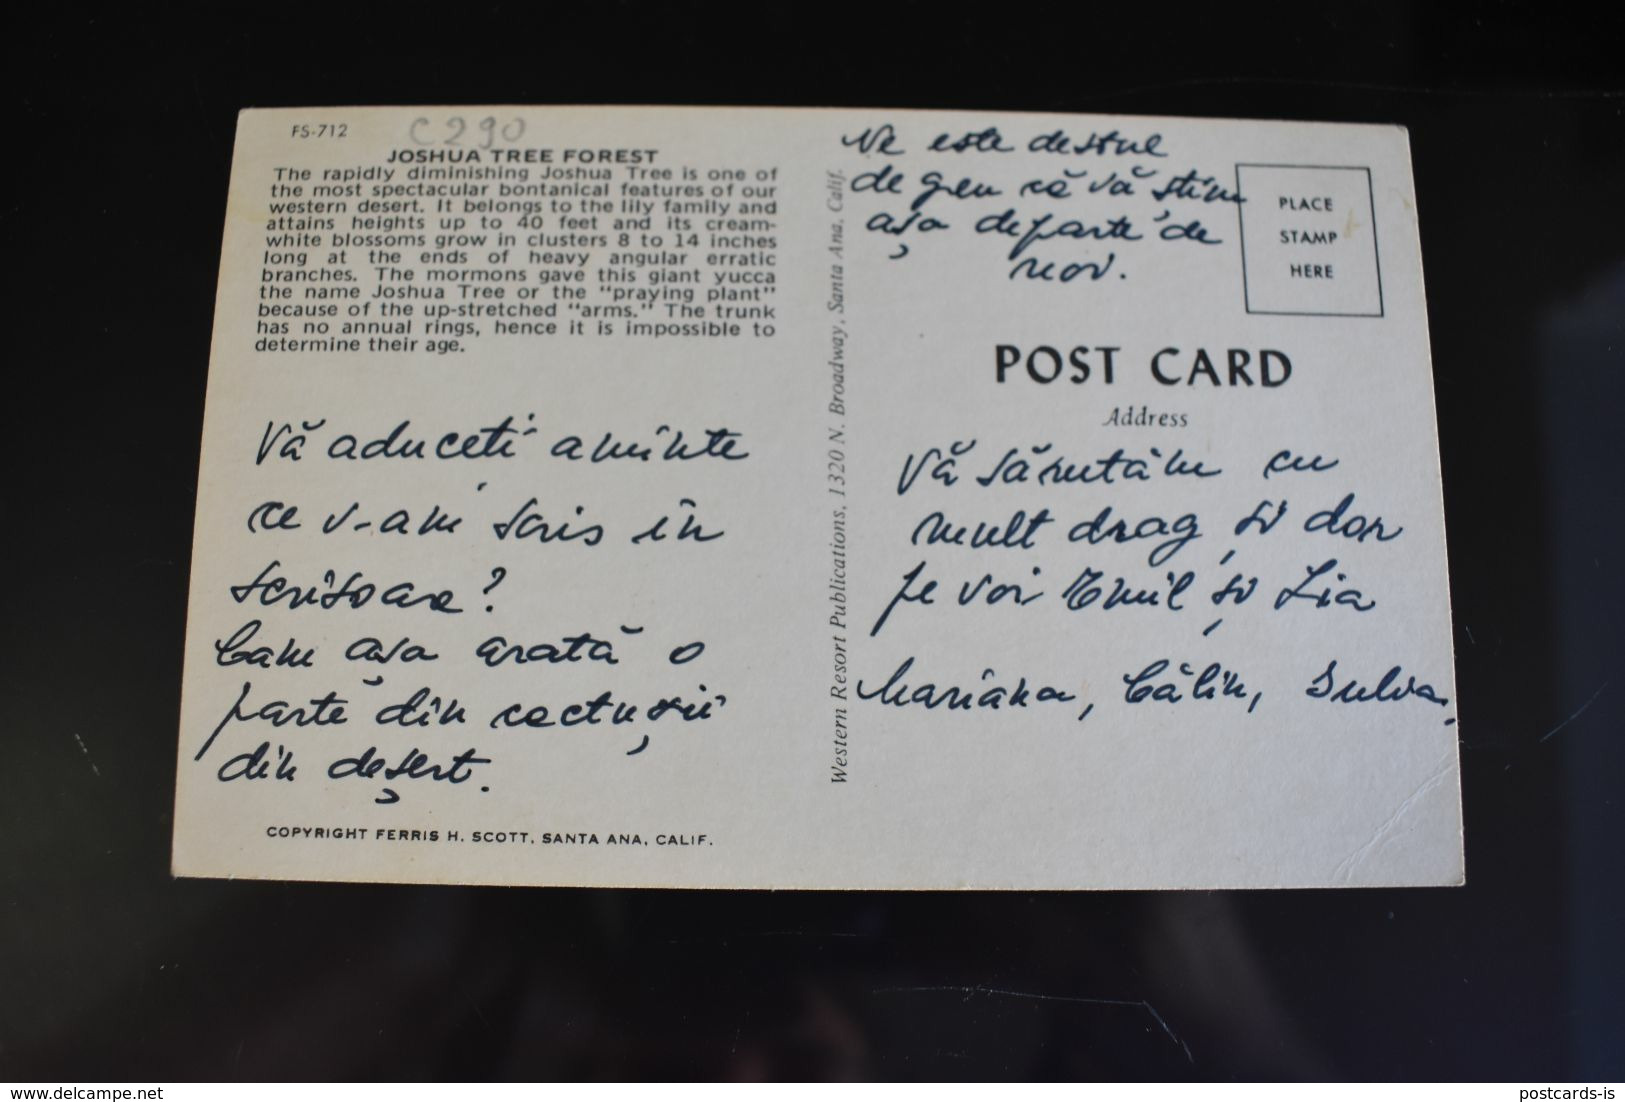 FS-712
C290
JOSHUA TREE FOREST
The rapidly diminishing Joshua Tree is one of
the most spectacular bontanical features of our
western desert. It belongs to the lily family and
attains heights up to 40 feet and its cream-
white blossoms grow in clusters 8 to 14 inches
long at the ends of heavy angular erratic
branches. The mormons gave this giant yucca
the name Joshua Tree or the "praying plant"
because of the up-stretched "arms." The trunk
has no annual rings, hence it is impossible to
determine their age.
Vă aduceți aminte
ce v-am scris în
scrisoare?
Cam așa arată o
parte din cactușii
din deșert.
COPYRIGHT FERRIS H. SCOTT, SANTA ANA, CALIF.
Western Resort Publications, 1320 N. Broadway, Santa Ana, Calif.
Ne este destul
de greu că vă știm
așa departe de
noi.
PLACE
STAMP
HERE
POST CARD
Address
Vă sărutăm cu
mult drag și dor
pe voi Emil și Lia
Mariana, Călin, Silvia,
delcampe.net
postcards-is